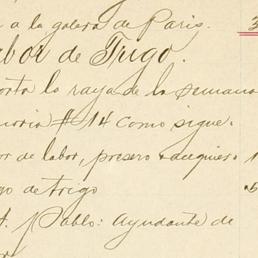 a la galera de Paris. 3
abor de Trigo.
orta la raya de la semana
moria #14 como sigue.
or de labor, presero
go de trigo .5
Pablo: Ayudante de